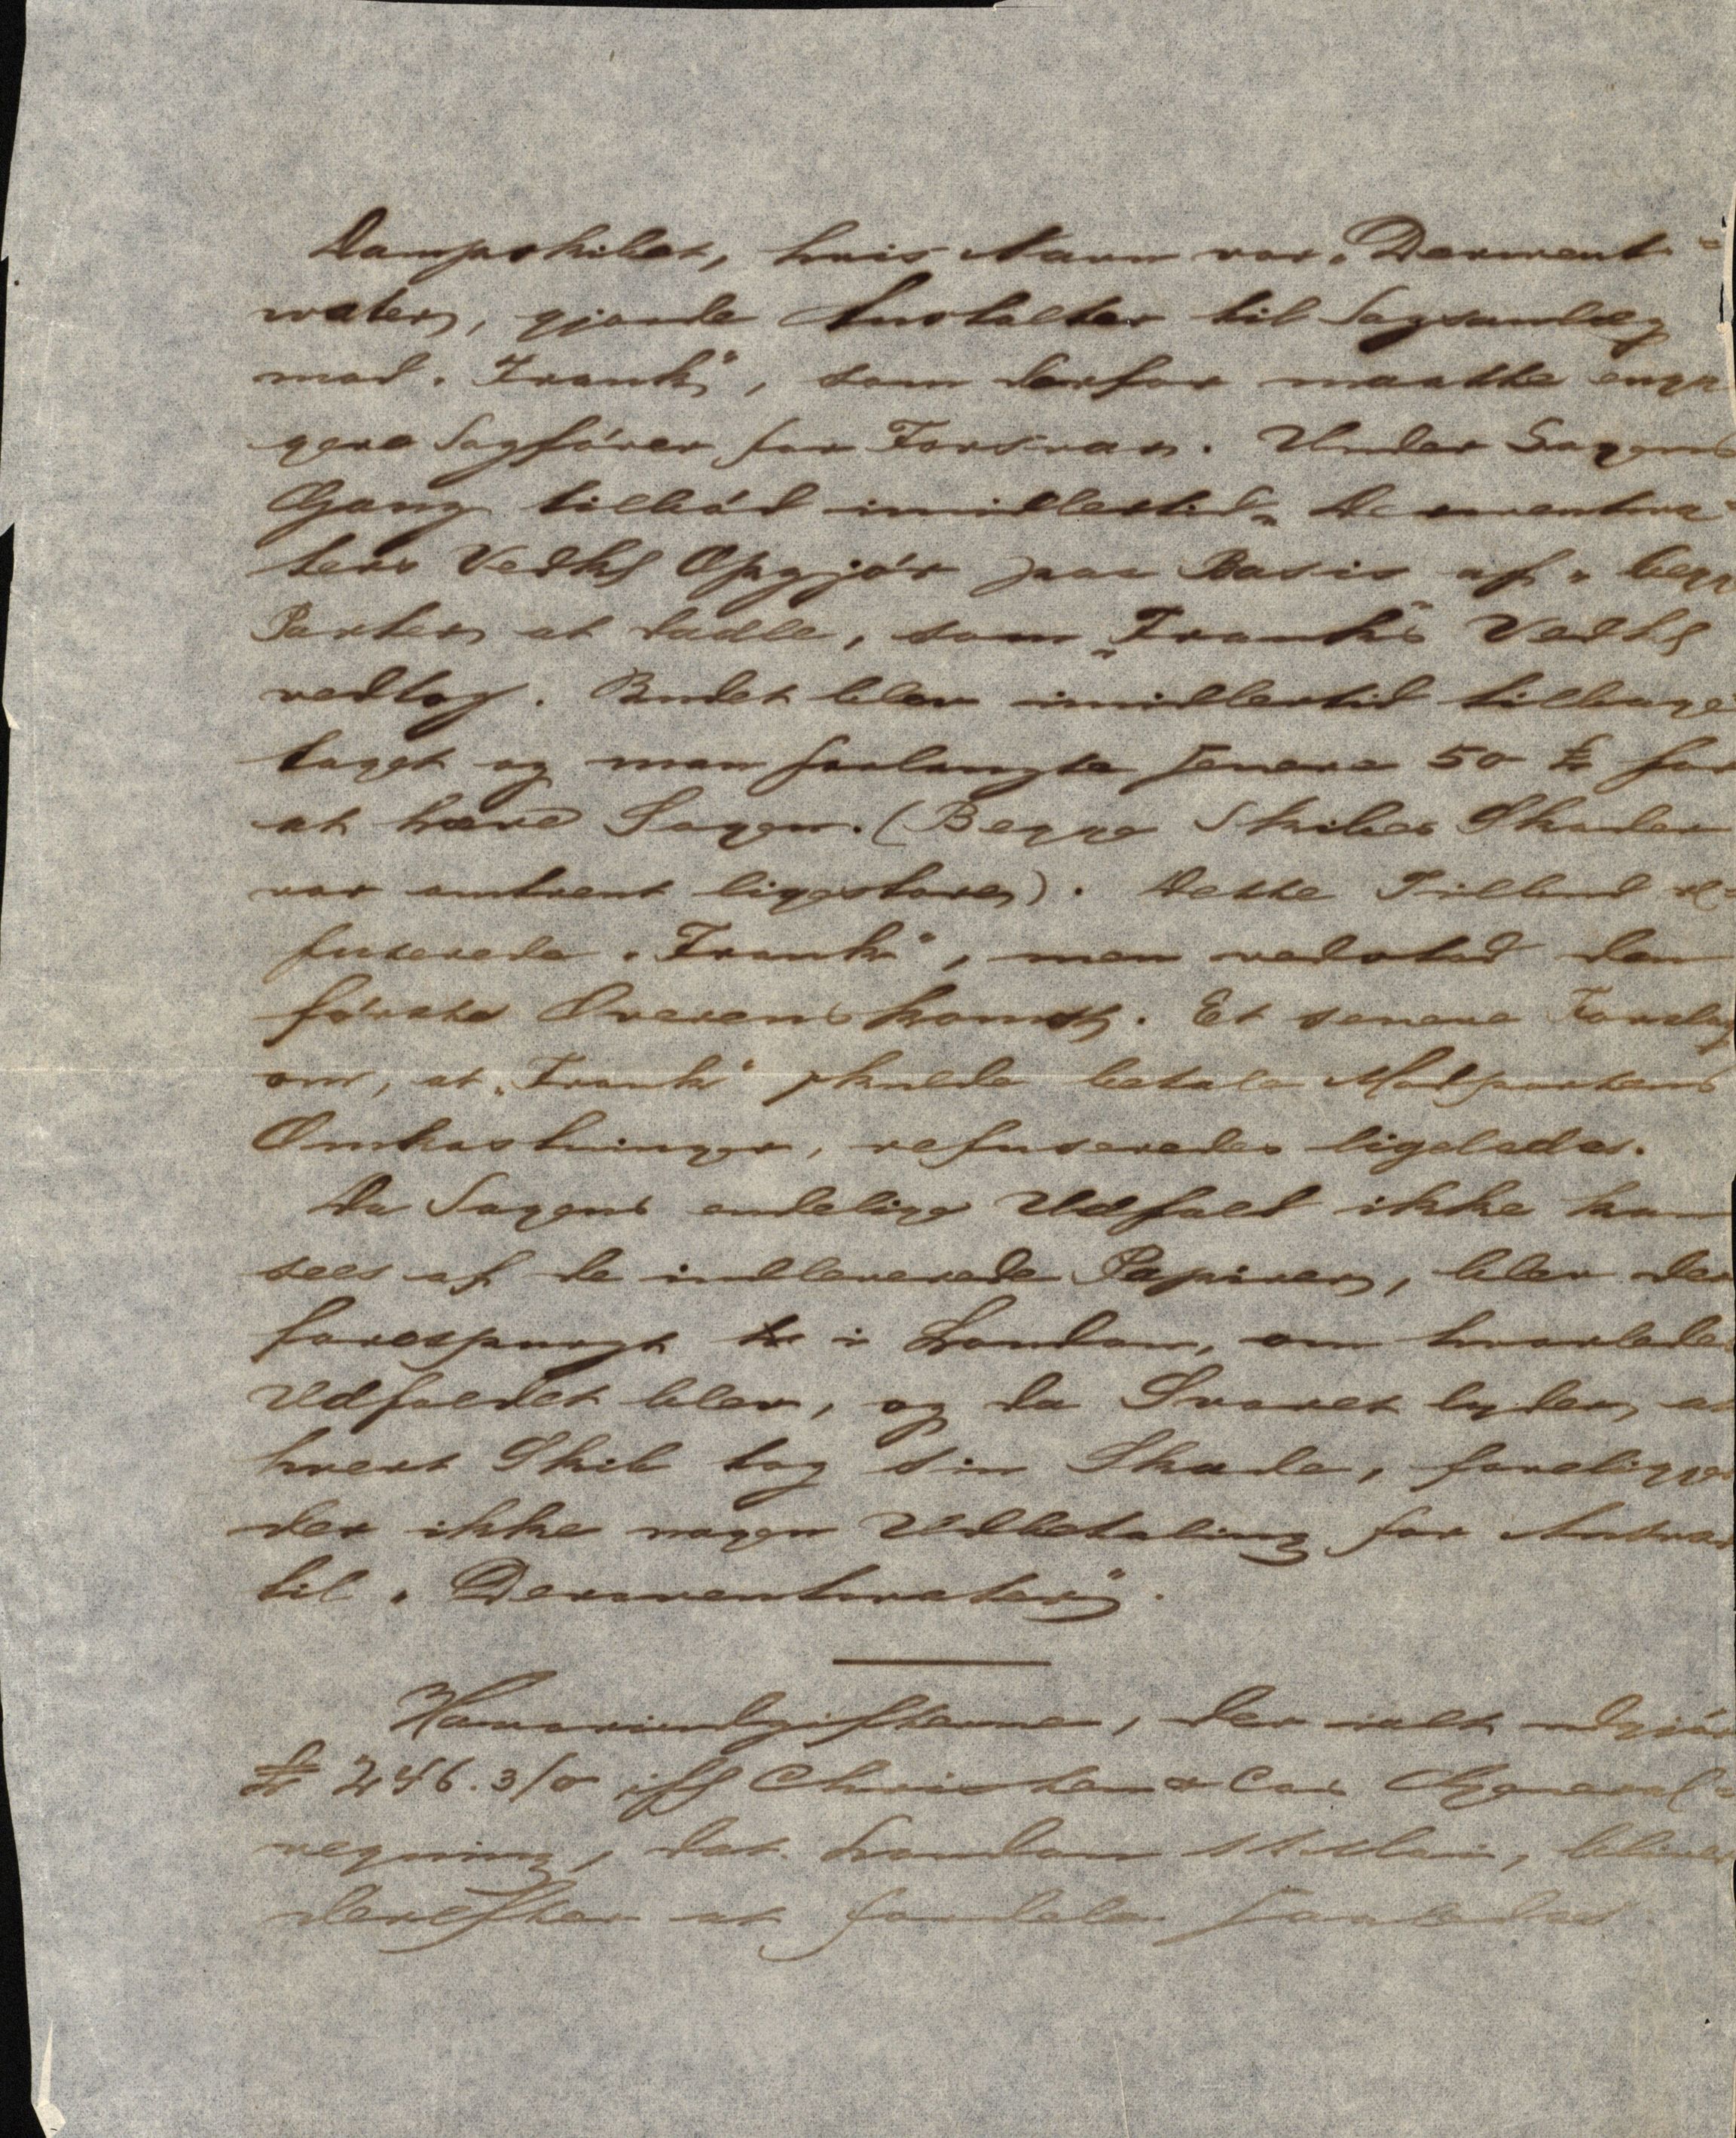 Dampskibet, hvis Navn var „Derwent=
water", gjorde Anstalter til Sagsanlæg
mod „Frank", som derfor maatte enga
gere Sagfører for Forsvar. Under Sagens
Gang tilbød imidlertid „Derwentwa
ters Vedk§ Opgjør paa Basis af „begge
Parter at dadle, som „Frank"s Vedk§
vedtog. Budet blev imidlertid tilbage
taget og man forlangte senere 50 £ for
at hæve Sagen. (Begge Skibes Skader
var omtrent ligestore). Dette Tilbud re
fuserede „Frank", men vedstod den
første Overenskomst. Et senere Forslag
om, at „Frank" skulde betale Modpartens
Omkostninger, refuseredes ligeledes.
Da Sagens endelige Udfald ikke kan
sees af de indleverede Papirer, blev der
forespurgt i London, om hvorledes
Udfaldet blev, og da Svaret lyder, at
hvert Skib tog sin Skade, foreligger
der ikke nogen Udbetaling for Ansvar
til „Derwentwater".
Havariudgifterne, der ialt udgjør
£ 246.3/0 if§ Christen & Cos General=
regning, dat. London Mai, bliver
derefter at fordele saaledes